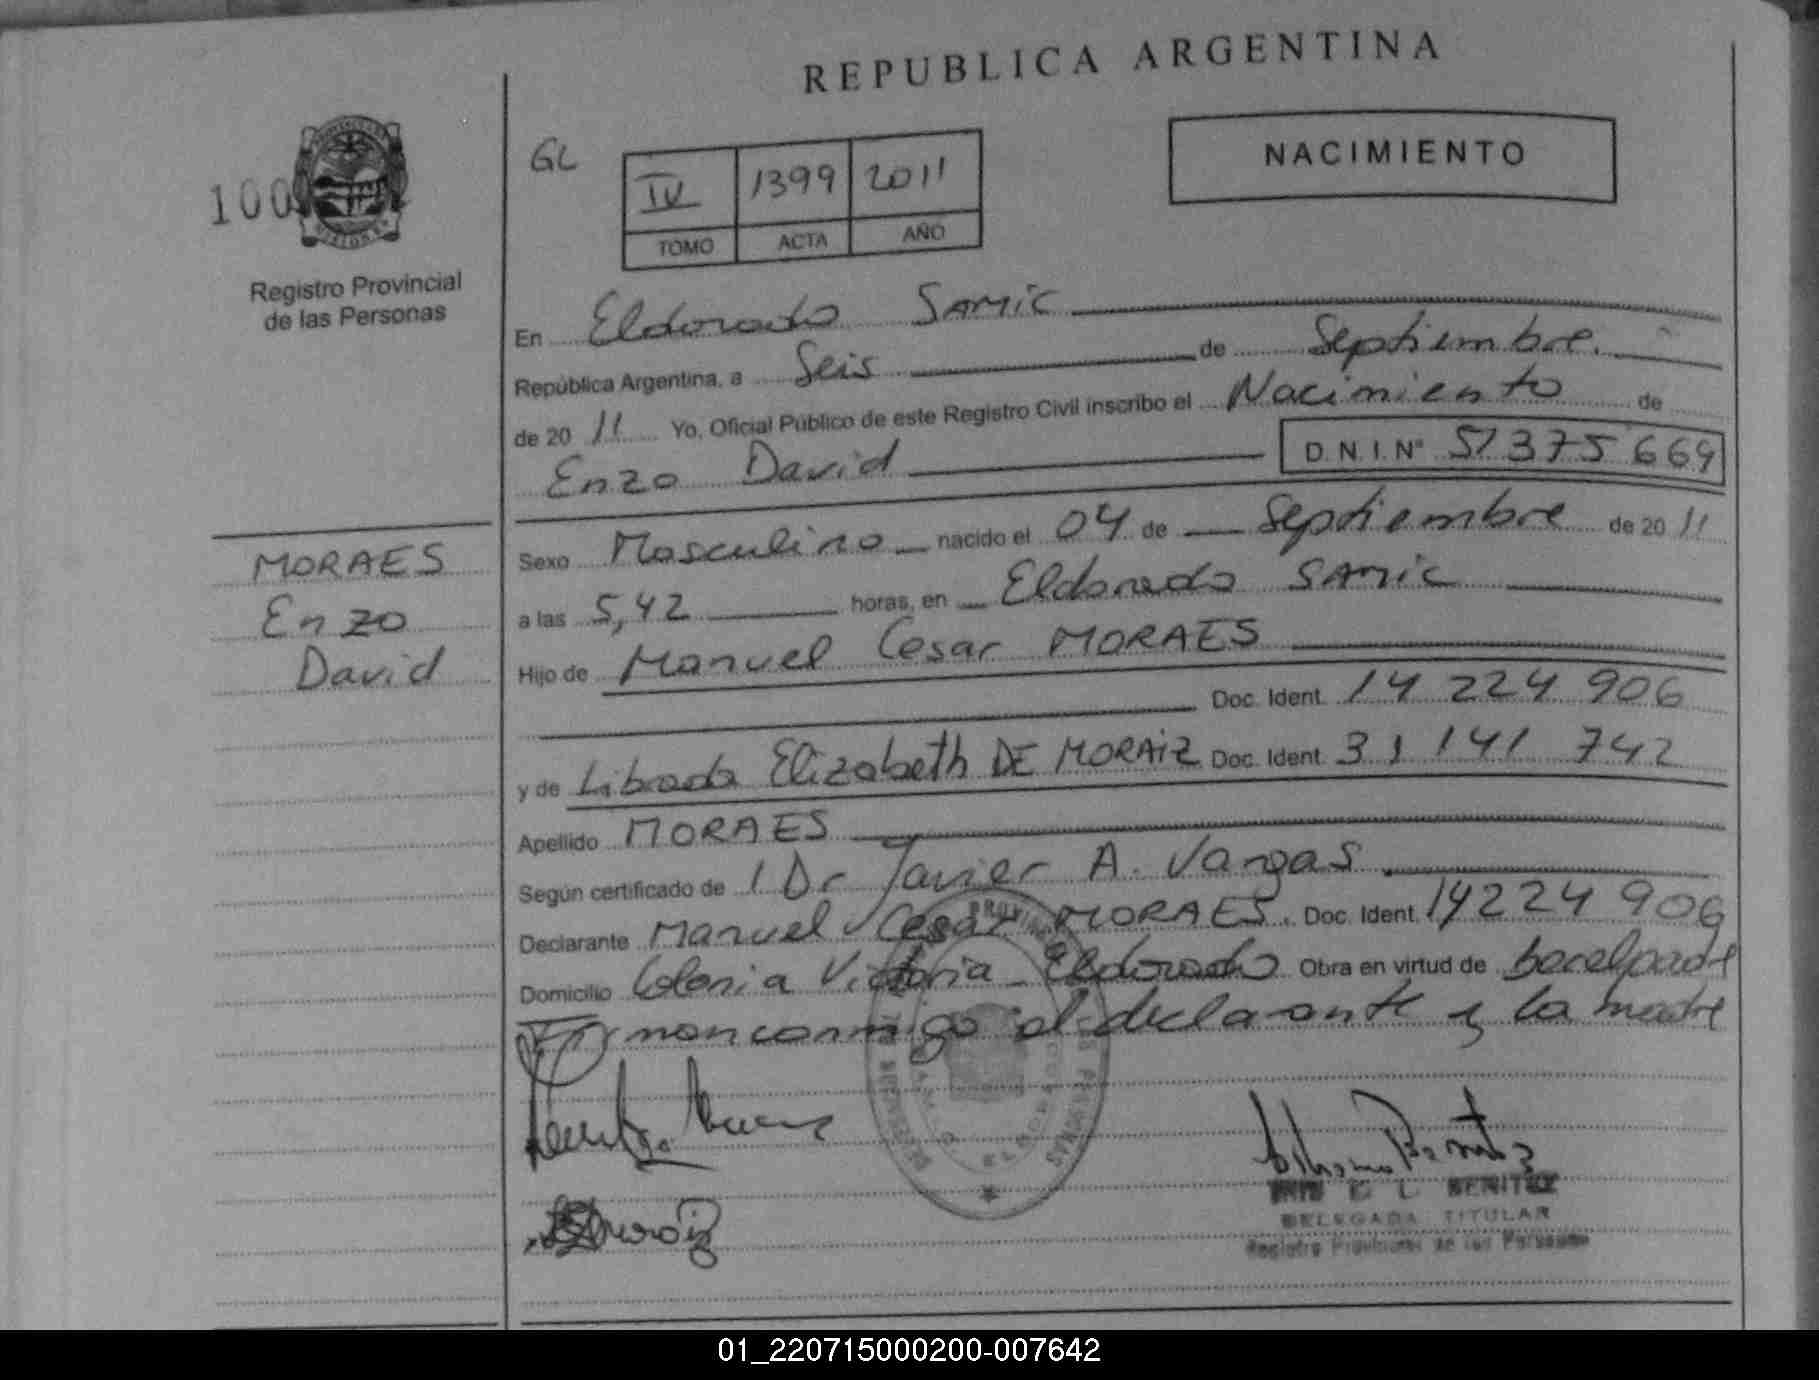 REPUBLICA ARGENTINA
NACIMIENTO
GL
IV 1399 2011
TOMO ACTA AÑO
100
Registro Provincial
de las Personas
En Eldorado SAMIC
República Argentina, a Seis de Septiembre
de 20 11 Yo, Oficial Público de este Registro Civil inscribo el Nacimiento de
Enzo David D.N.I. Nº 51 375 669
Sexo Masculino nacido el 04 de Septiembre de 20 11
a las 5,42 horas, en Eldorado SAMIC
Hijo de Manuel Cesar MORAES
Doc. Ident. 14 224 906
y de Librada Elizabeth DE MORAIZ Doc. Ident. 31 141 742
Apellido MORAES
Según certificado de 1 Dr Javier A. Vargas
Declarante Manuel Cesar MORAES. Doc. Ident. 14224 906
Domicilio Colonia Victoria - Eldorado Obra en virtud de
el declarante y la madre
MORAES
Enzo
David
BENITEZ
DELEGADA TITULAR
Registro Provincial de las Personas
01_220715000200-007642